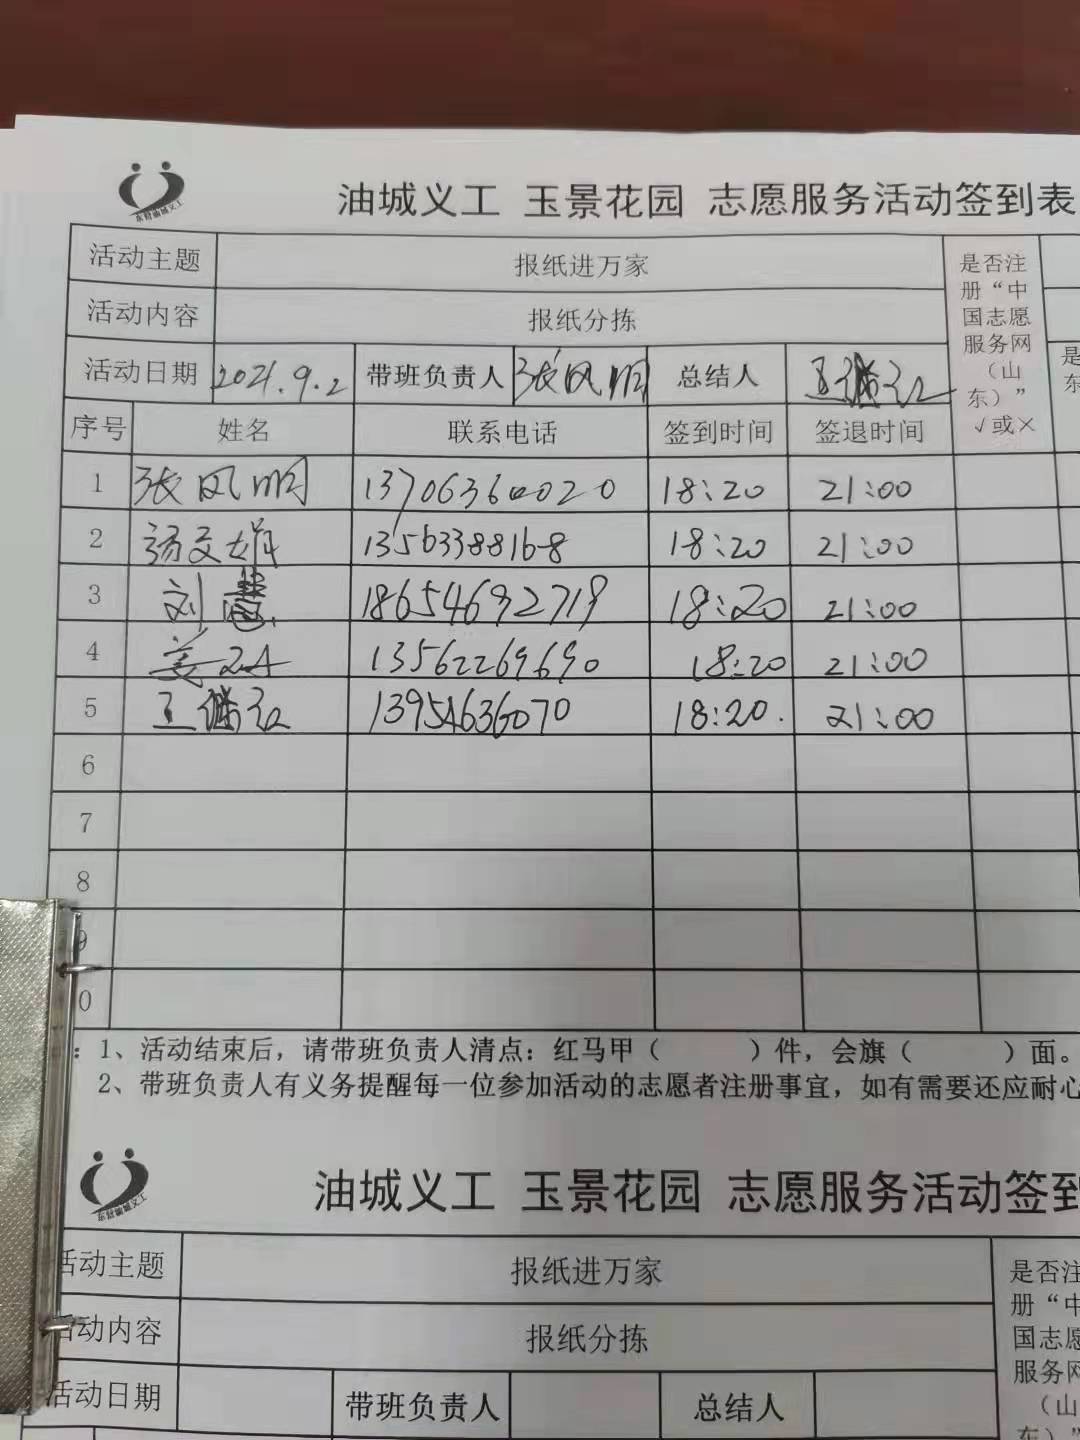 油城义工 玉景花园 志愿服务活动签到表
活动主题 报纸进万家 是否注册“中国志愿服务网（山东）”√或×
活动内容 报纸分拣
活动日期 2021.9.2 带班负责人 张风明 总结人 王
序号 姓名 联系电话 签到时间 签退时间
1 张风明 13706360020 18:20 21:00
2 13563388168 18:20 21:00
3 刘慧 18654692719 18:20 21:00
4 姜 13562269690 18:20 21:00
5 王 13954636070 18:20. 21:00
6
7
8
9
0
：1、活动结束后，请带班负责人清点：红马甲（ ）件，会旗（ ）面。
2、带班负责人有义务提醒每一位参加活动的志愿者注册事宜，如有需要还应耐心
油城义工 玉景花园 志愿服务活动签到
活动主题 报纸进万家 是否注册“中国志愿服务网（山东）”
活动内容 报纸分拣
活动日期 带班负责人 总结人